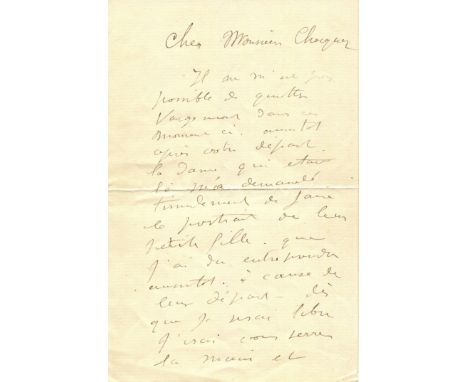 Cher Monsieur Chocquet
Il ne m'est pas
possible de quitter
Wargemont dans ce
moment ci. aussitot
après votre départ.
la dame qui etait
là m'a demandé
timidement de faire
le portrait de leur
petite fille. que
j'ai du entreprendre
aussitot. à cause de
leur départ. dès
que je serai libre
j'irai vous serrer
la main et